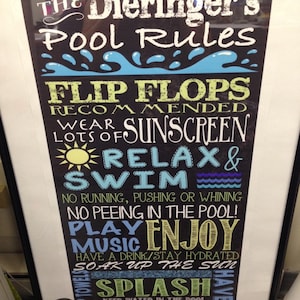 THE Dieringer's
Pool Rules
FLIP FLOPS
RECOMMENDED
WEAR LOTS OF SUNSCREEN
RELAX &
SWIM
NO RUNNING, PUSHING OR WHINING
NO PEEING IN THE POOL!
PLAY MUSIC ENJOY
HAVE A DRINK/STAY HYDRATED
SOAK UP THE SUN
SPLASH
KEEP WATER IN THE POOL
HAVE